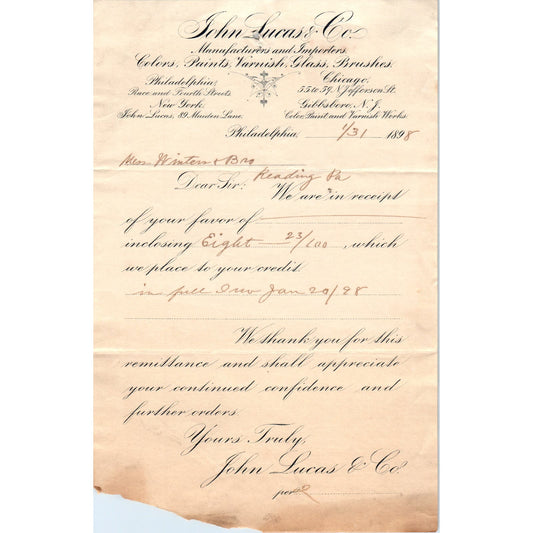 John Lucas & Co.
Manufacturers and Importers
Colors, Paints, Varnish, Glass, Brushes.
Philadelphia,
Race and Fourth Streets.
New York.
John Lucas, 89 Maiden Lane.
Chicago,
55 to 59. N. Jefferson St.
Gibbsboro, N.J.
Color, Paint and Varnish Works.
Philadelphia, 1/31 1898
Mess. Winters & Bro
Reading Pa
Dear Sir: We are in receipt
of your favor of
inclosing Eight 23/100, which
we place to your credit
in full Inv Jan 20/98
We thank you for this
remittance and shall appreciate
your continued confidence and
further orders.
Yours Truly,
John Lucas & Co.
per